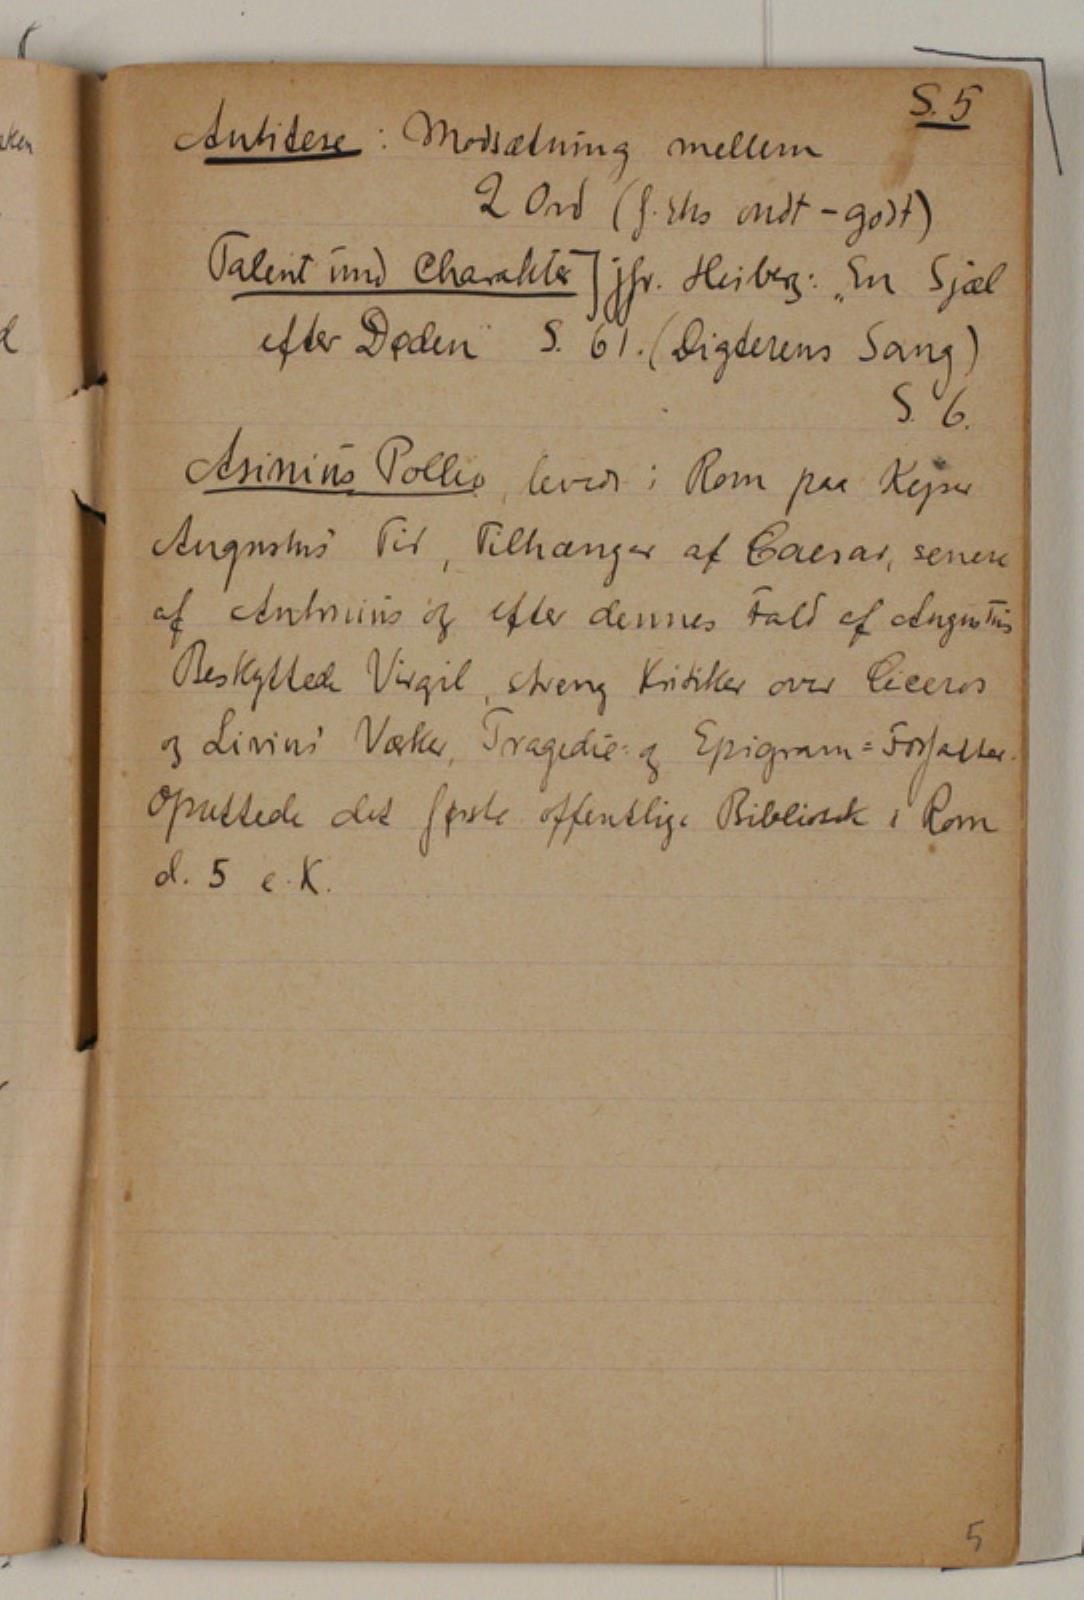 S. 5
Antitese : Modsætning mellem
2 Ord (f. Eks ondt - godt)
Talent und Charakter] jfr. Heiberg: „En Sjæl
efter Døden" S. 61. (Digterens Sang)
S. 6.
Asinius Pollio, levede i Rom paa Kejser
Augustus' Tid, Tilhænger af Caesar, senere
af Antonius og efter dennes Fald af Augustus
Beskyttede Virgil, streng Kritiker over Ciceros
og Livius' Værker, Tragedie= og Epigram=Forfatter.
Oprettede det første offentlige Bibliotek i Rom
d. 5 e. K.
5